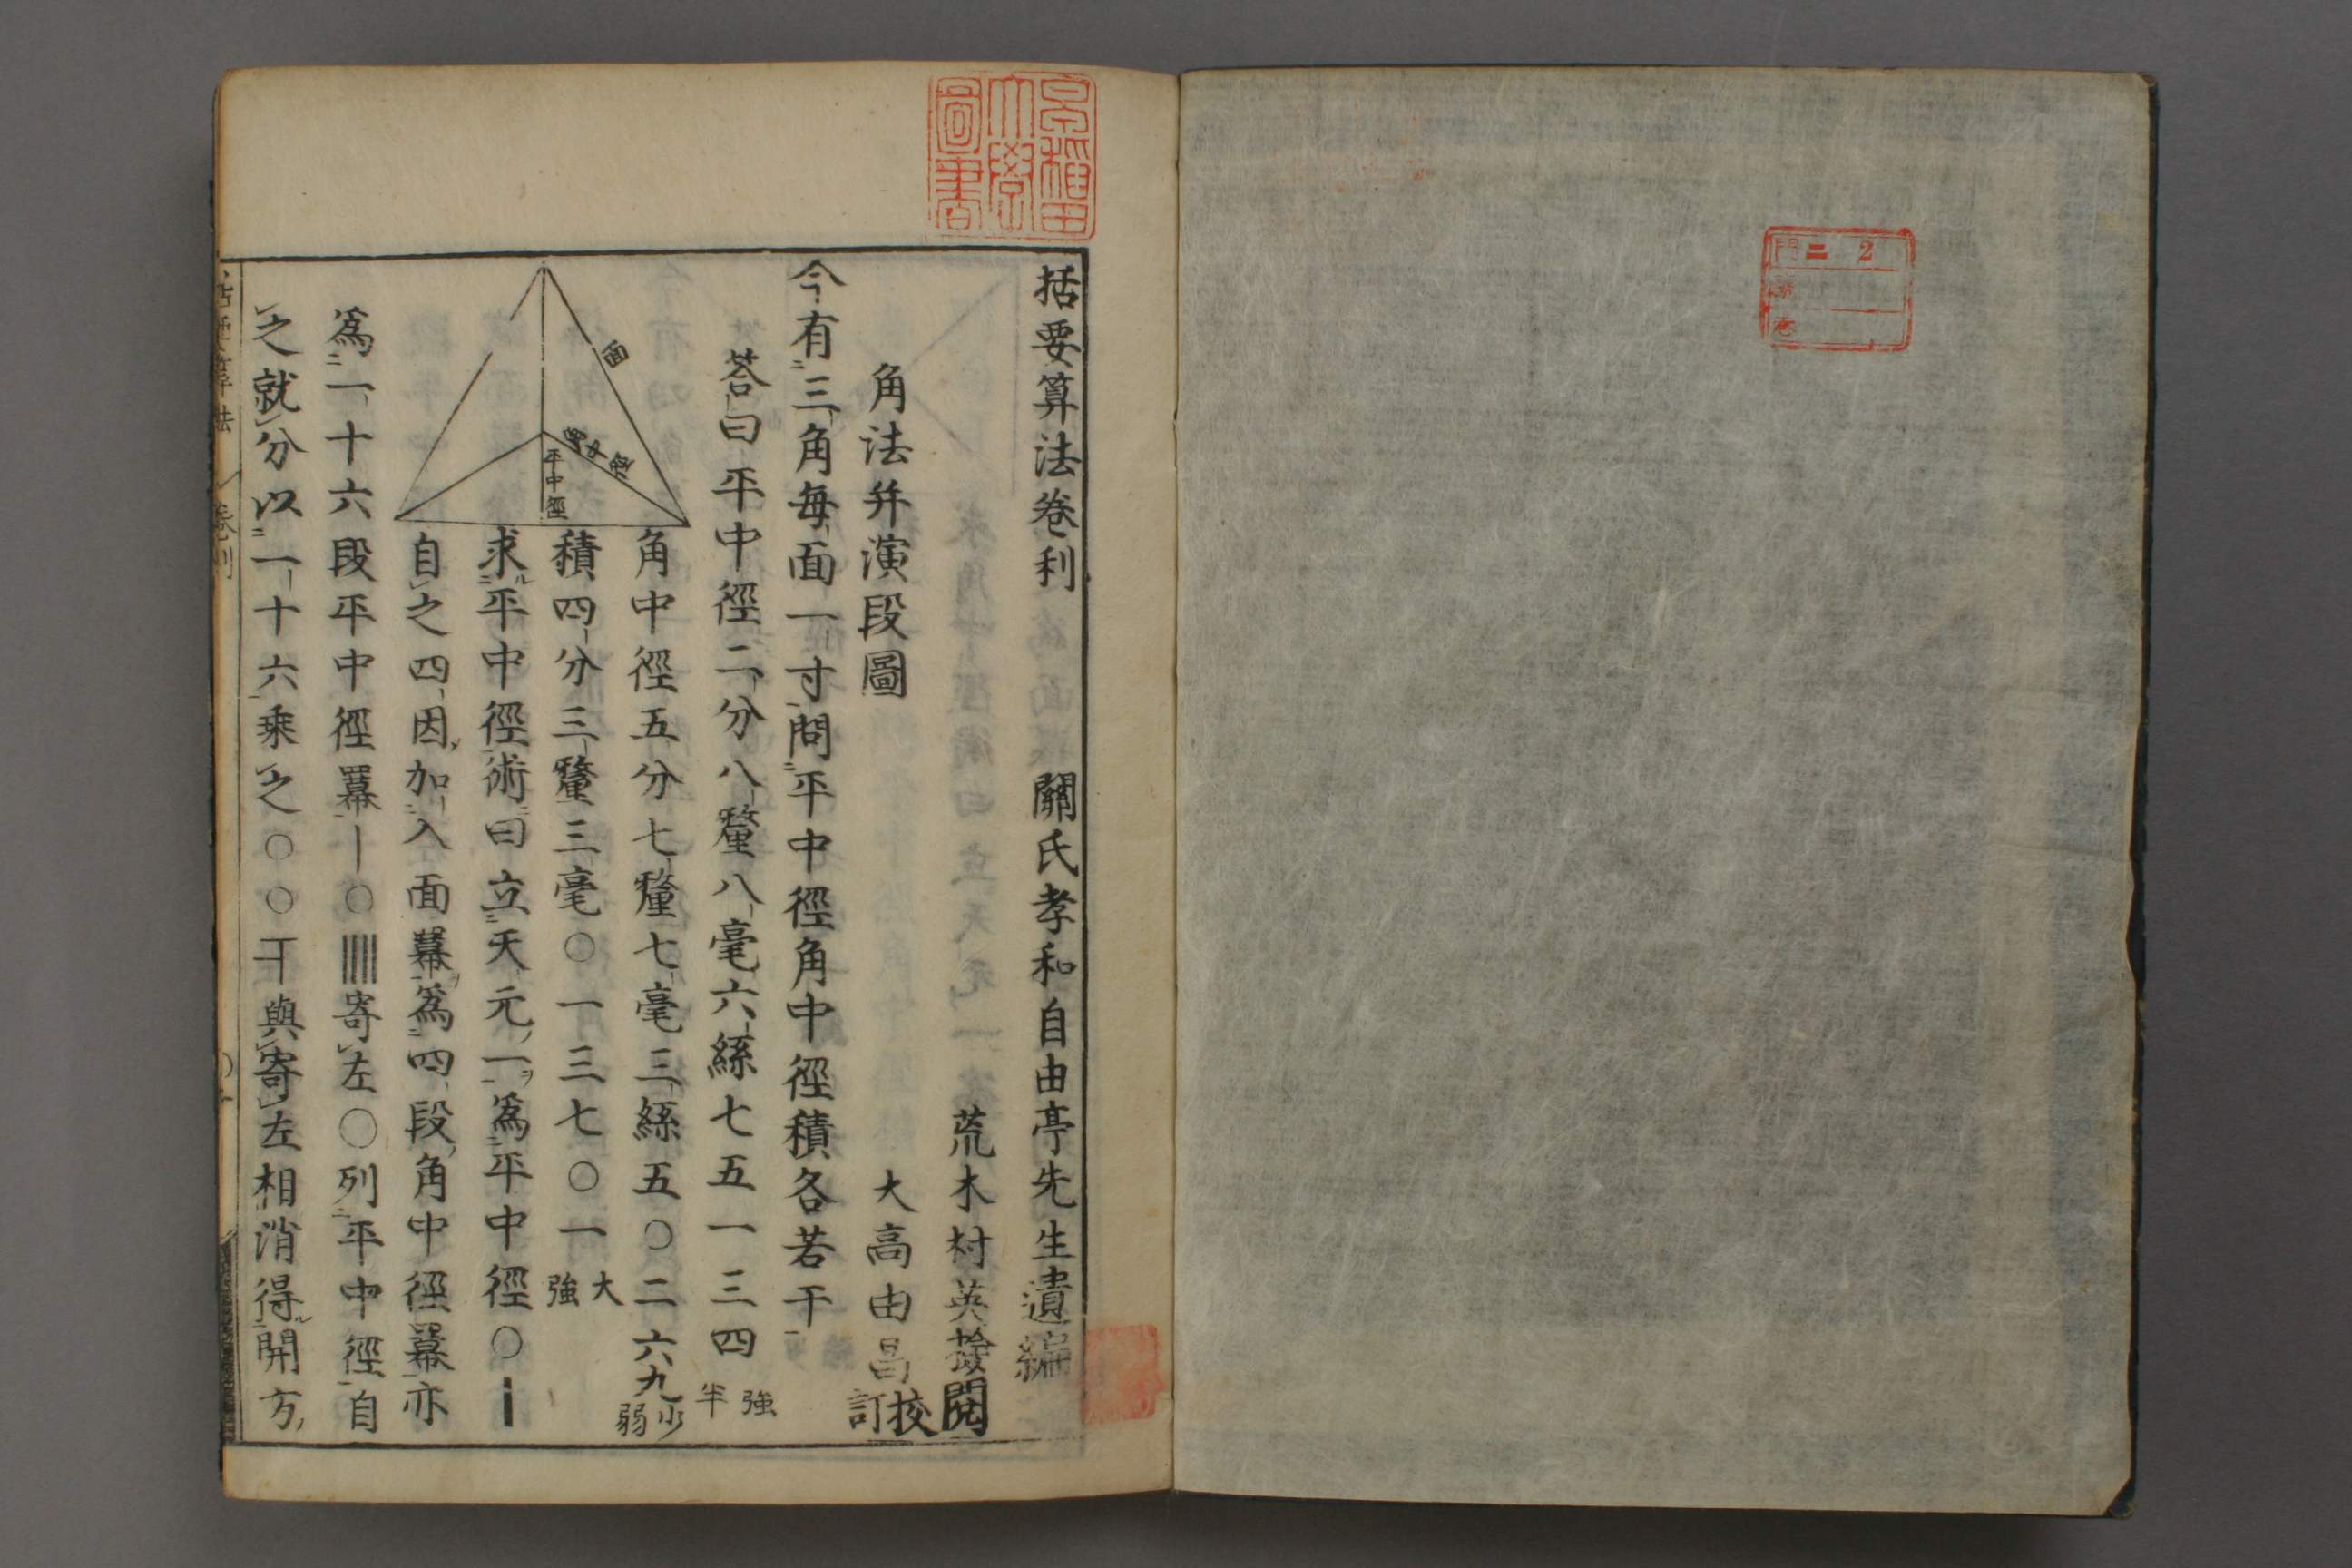 門 二 2
早稲田
大學
圖書
括要算法卷利 關氏孝和自由亭先生遺編
荒木村英撿閱
角法并演段圖 大高由昌校訂
今有三角每面一寸問平中徑角中徑積各若干
荅曰平中徑二分八釐八毫六絲七五一三四強半
角中徑五分七釐七毫三絲五〇二六九少弱
積四分三釐三毫〇一三七〇一大強
求平中徑術曰立天元一爲平中徑〇|
自之四因加入面冪爲四段角中徑冪亦
爲一十六段平中徑冪|〇||||寄左〇列平中徑自
之就分以一十六乘之〇〇〒與寄左相消得開方
面
角中徑
平中徑
括要算法 卷利